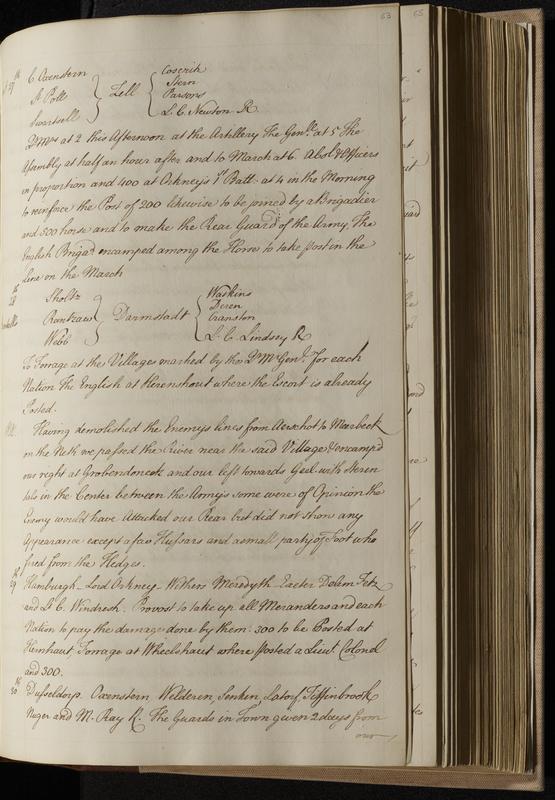 63
27th C Oxenstern
St Poll
Swartsell
Zell
Coserih
Stern
Parsons
L. C. Newton R
Dr Mrs at 2 this Afternoon at the Artillery The Genll at 5 The
Assembly at half an hour after and to March at 6. Abol & Officers
in proportion and 400 at Orkneys 1st Batt: at 4 in the Morning
to reinforce the Post of 200 likewise to be joined by a Brigadier
and 500 horse and to make the Rear Guard of the Army. The
English Brigad encamped among the Horse to take post in the
Line on the March
28th Sholtz
Rantzaw
Webb
Darmstadt
Waskins
Deren
Cranston
L. C. Lindsey R
To Forrage at the Villages marked by the Qr Mr Genll for each
Nation The English at Herenshout where the Escort is already
Posted.
Having demolished the Enemys lines from Aerschot to Meerbeek
on the Neth we passed the River near the said Village & encamp'd
our right at Grobendonck and our left towards Geel with Heren
tals in the Center between the Armys some were of Opinion the
Enemy would have Attacked our Rear but did not show any
Appearance except a few Hussars and a small party of Foot who
fired from the Hedges.
29th Hamburgh Lord Orkney Withers Meredyth Exeter Dohem Fetz
and Lt C. Windresh. Provost to take up all Meranders and each
Nation to pay the damage done by them. 300 to be Posted at
Hernhaut Forrage at Wheelshaut where posted a Lieut Colonel
and 300.
30th Dusseldorp. Oxenstern Welderen Senkin Latoif Tiffinbrook
Neger and M. Ray R. The Guards in Town given 2 days from
our